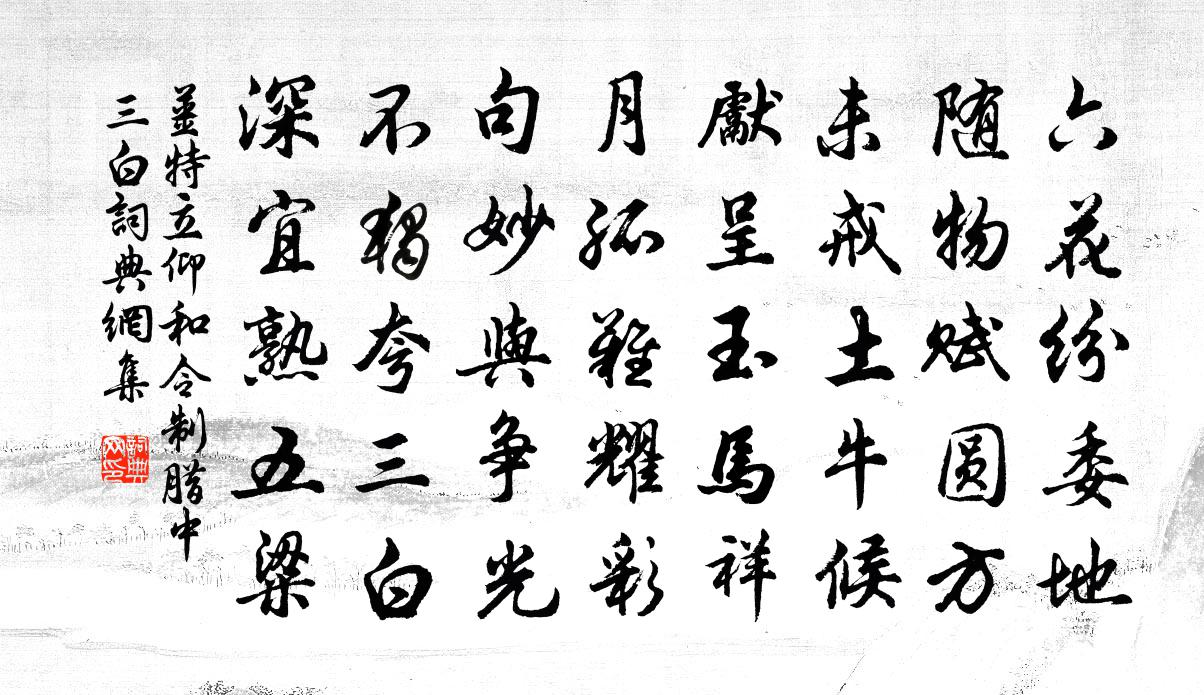 六花纷委地
随物赋圆方
未戒土牛候
獻呈玉馬祥
月孤難耀彩
句妙與争光
不独夸三白
深宜熟五粱
姜特立仰和令制腊中
三白詞典網集
詞典网印